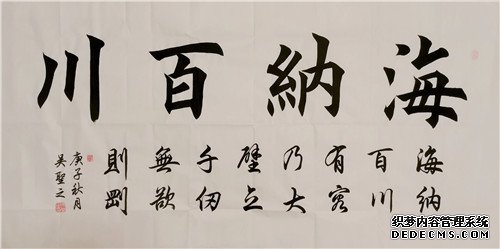 海納百川
海納
百川
有容
乃大
壁立
千仞
無欲
則剛
庚子秋月
吴聖之
织梦内容管理系统
DEDECMS.COM